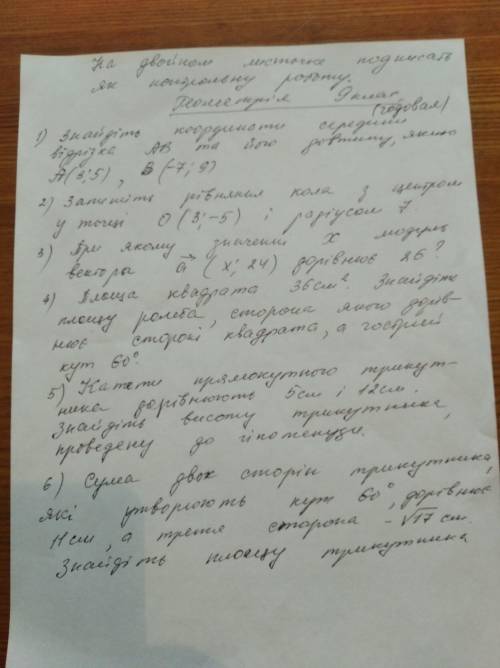 На двойном листочке подписать
як контрольну роботу.
Геометрія 9 клас
(годовая)
1) Знайдіть координати середини
відрізка АВ та його довжину, якщо
А(3;5), В(-7;9)
2) Запишіть рівняння кола з центром
у точці О(3;-5) і радіусом 7.
3) При якому значенні Х модуль
вектора a⃗ (х; 24) дорівнює 26?
4) Площа квадрата 36см². Знайдіть
площу ромба, сторона якого дорів-
нює стороні квадрата, а гострий
кут 60°.
5) Катети прямокутного трикут-
ника дорівнюють 5см і 12см.
Знайдіть висоту трикутника,
проведену до гіпотенузи.
6) Сума двох сторін трикутника,
які утворюють кут 60°, дорівнює
11см, а третя сторона - √17 см.
Знайдіть площу трикутника